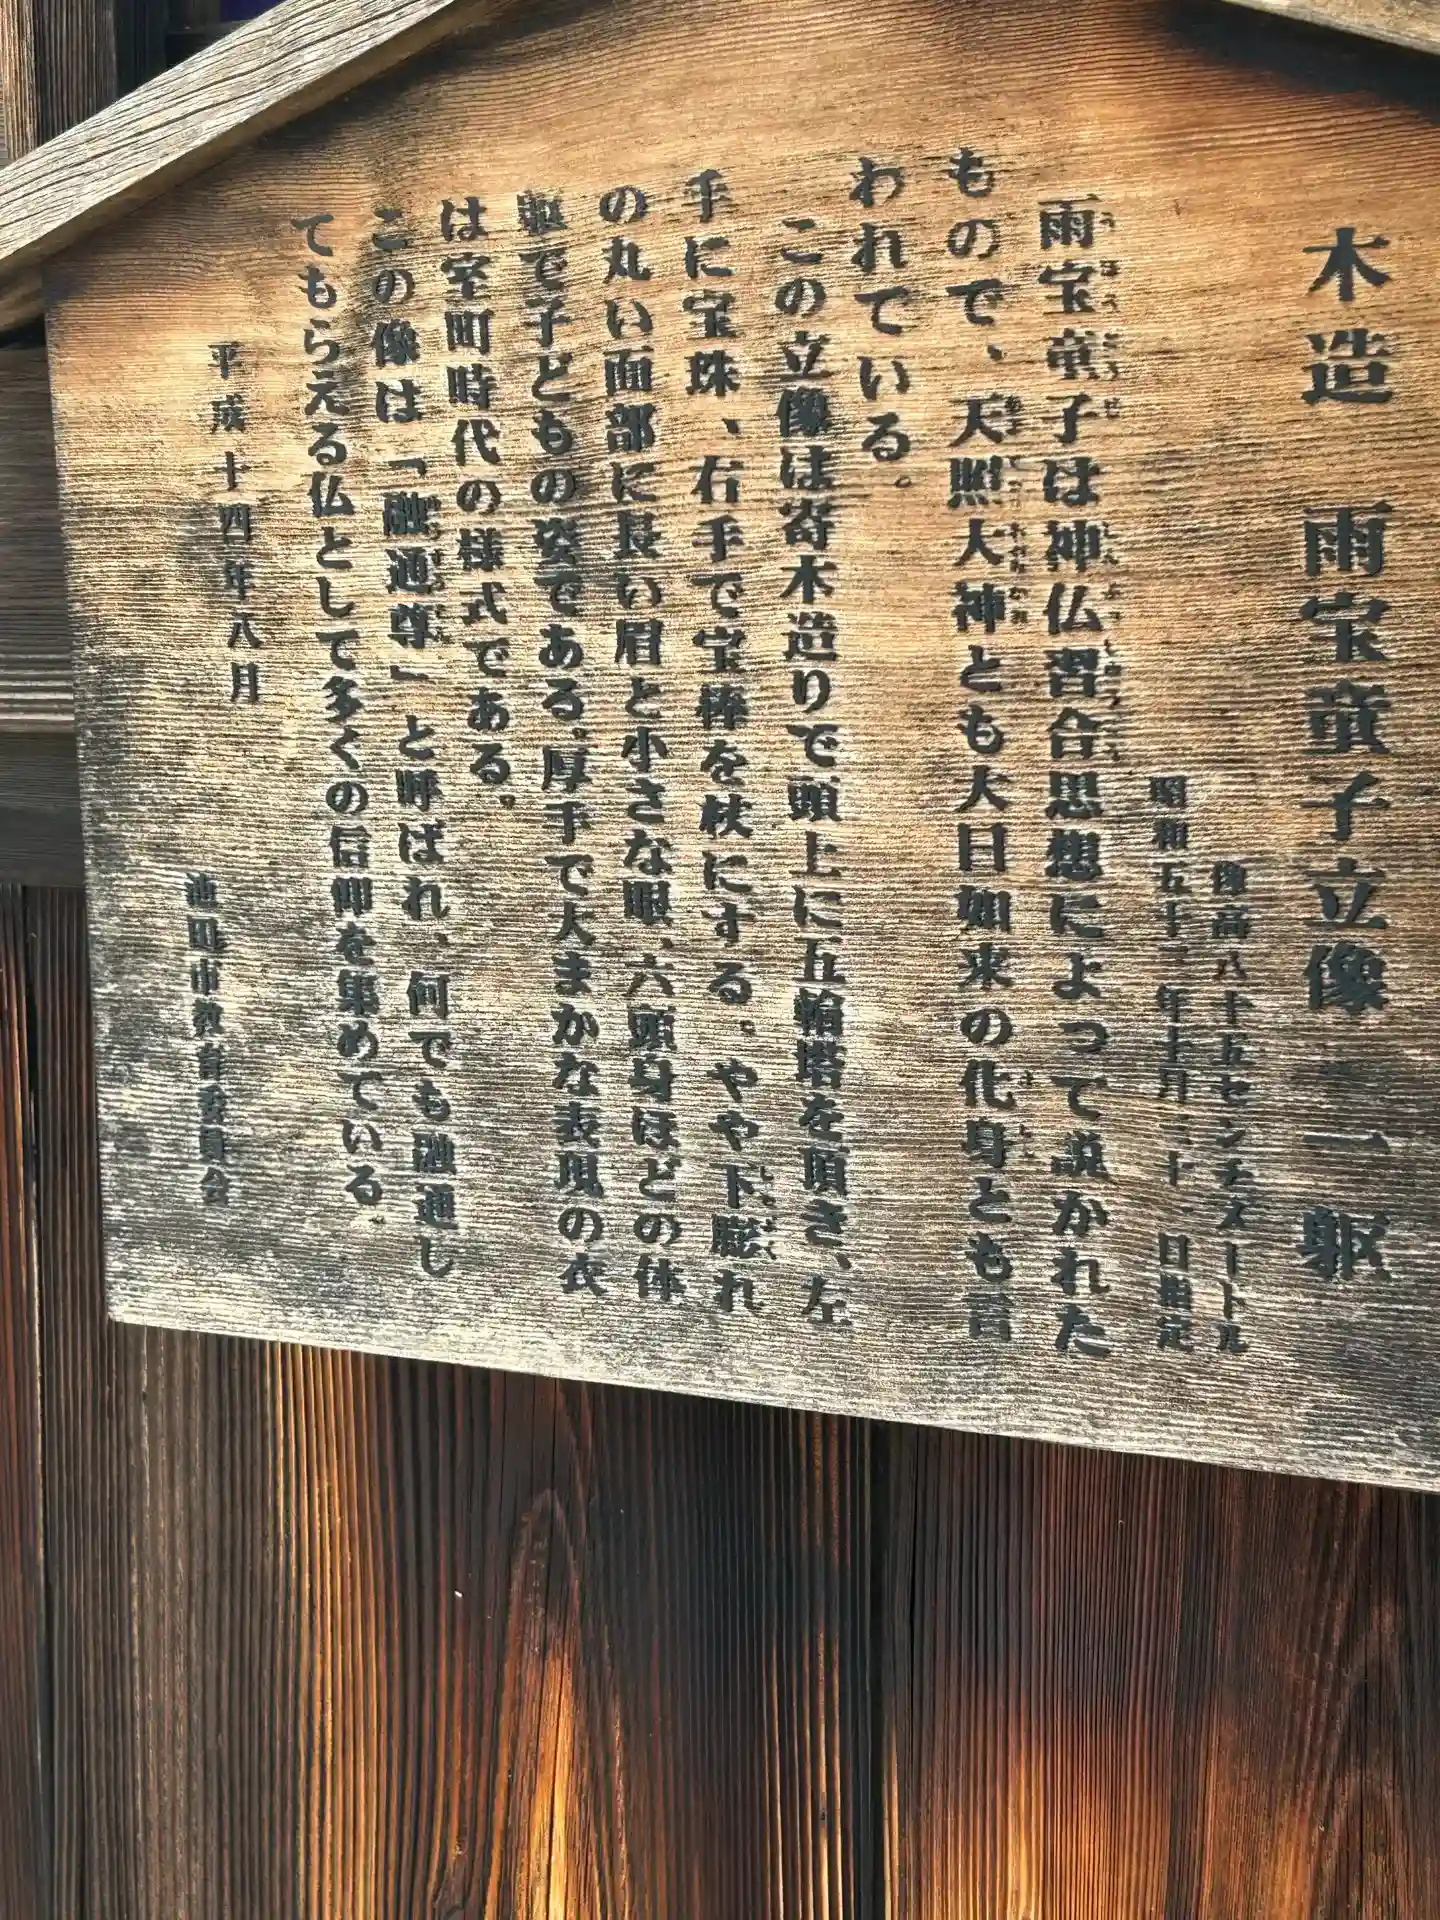 木造 雨宝童子立像 一躯
像高八十五センチメートル
昭和五十二年十月二十一日指定
雨宝童子は神仏習合思想によって説かれた
もので、天照大神とも大日如来の化身とも言
われている。
この立像は寄木造りで頭上に五輪塔を頂き、左
手に宝珠、右手で宝棒を杖にする。やや下膨れ
の丸い面部に長い眉と小さな眼、六頭身ほどの体
躯で子どもの姿である。厚手で大まかな表現の衣
は室町時代の様式である。
この像は「融通尊」と呼ばれ、何でも融通し
てもらえる仏として多くの信仰を集めている。
平成十四年八月
池田市教育委員会